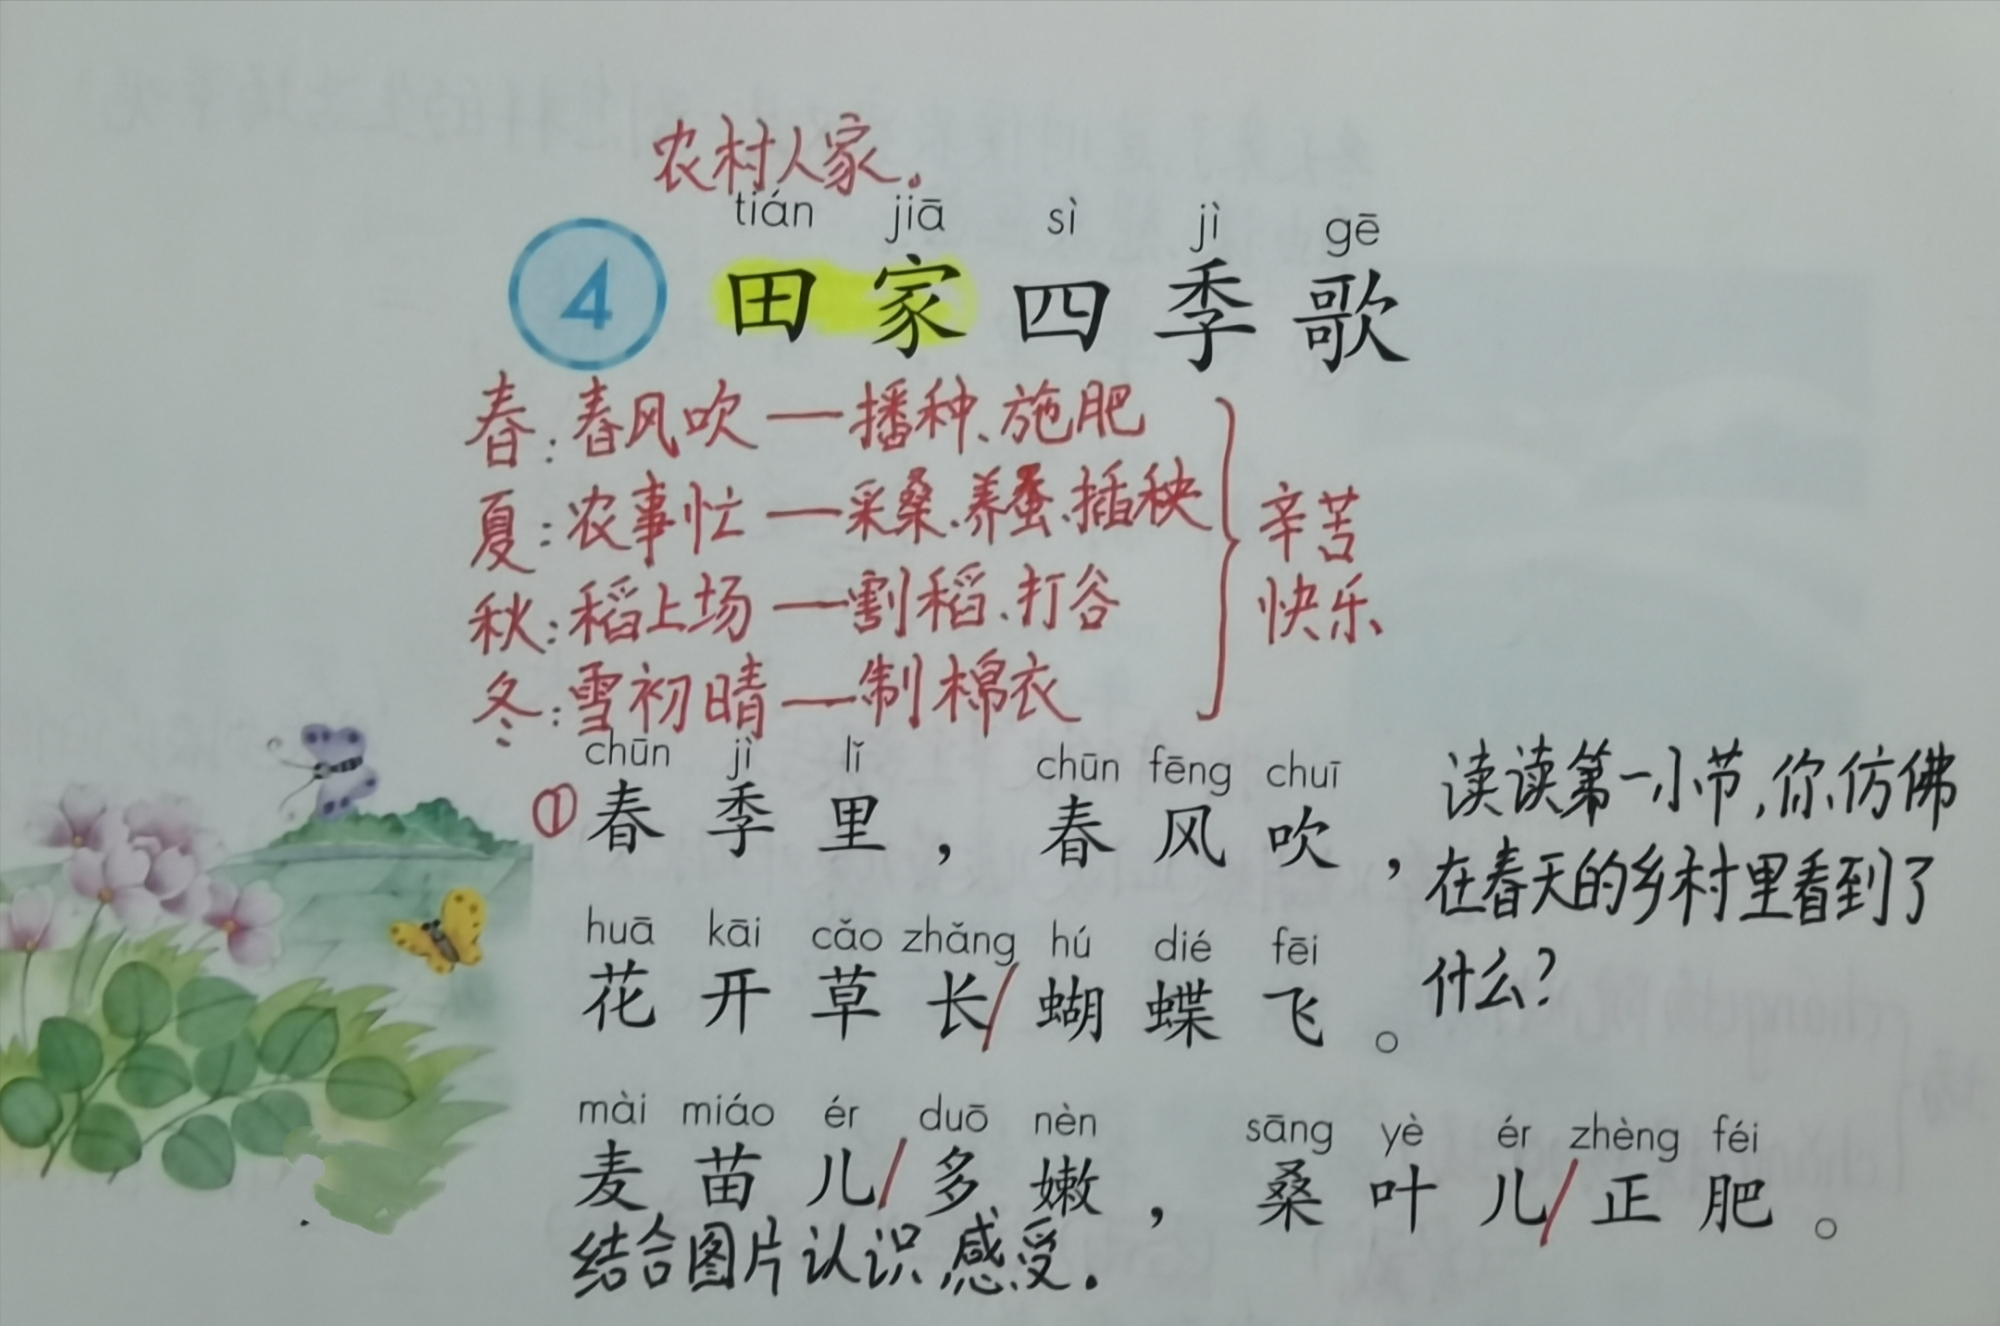 农村人家。
tián jiā sì jì gē
4 田家四季歌
春:春风吹—播种、施肥
夏:农事忙—采桑、养蚕、插秧
秋:稻上场—割稻、打谷
冬:雪初晴—制棉衣
辛苦
快乐
chūn jì lǐ chūn fēng chuī
①春季里，春风吹，
huā kāi cǎo zhǎng hú dié fēi
花开草长/蝴蝶飞。
mài miáo ér duō nèn sāng yè ér zhèng féi
麦苗儿/多嫩，桑叶儿/正肥。
结合图片认识,感受.
读读第一小节,你仿佛
在春天的乡村里看到了
什么?